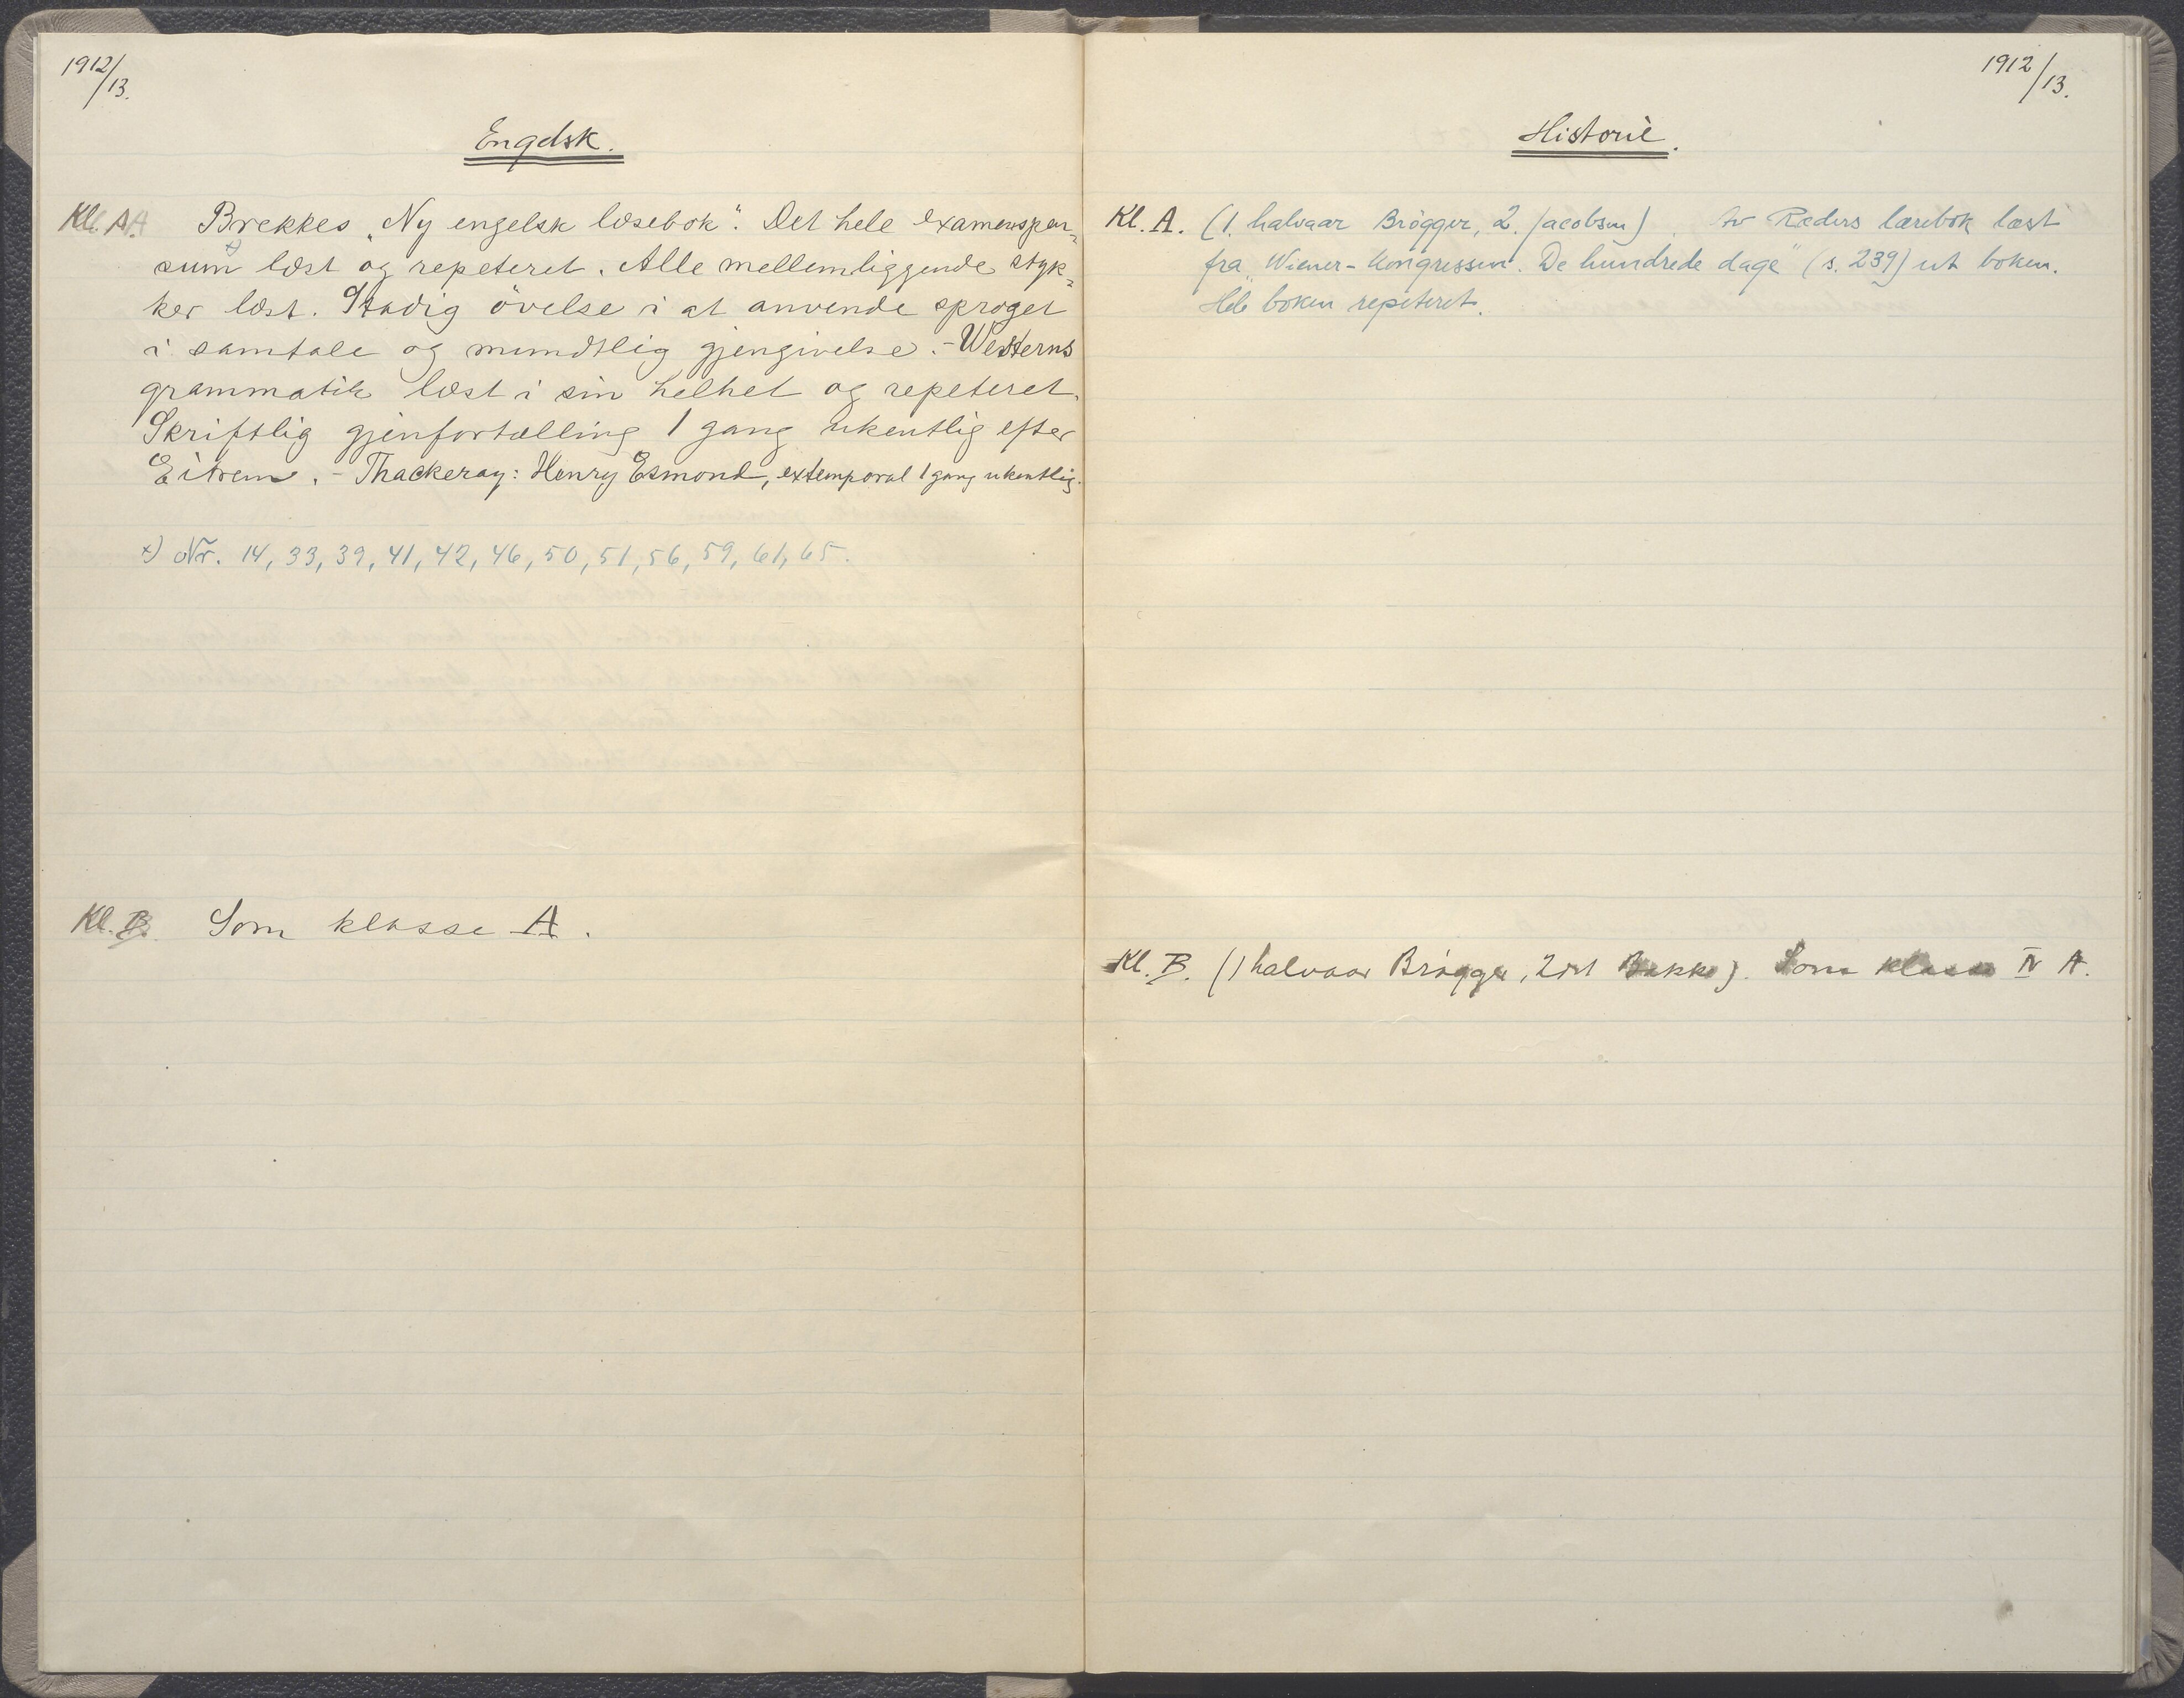 1912/13.
Engelsk.
Kl. A. Brekkes „Ny engelsk læsebok". Det hele examenspen=
sum x) læst og repeteret. Alle mellemliggende styk=
ker læst. Stadig övelse i at anvende sproget
i samtale og mundtlig gjengivelse. - Westerns
grammatik læst i sin helhet og repeteret.
Skriftlig gjenfortælling 1 gang ukentlig efter
Eitrem. - Thackeray: Henry Esmond, extemporal 1 gang ukentlig.
x) Nr. 14, 33, 39, 41, 42, 46, 50, 51, 56, 59, 61, 65.
Kl. B. Som klasse A.
1912/13.
Historie.
Kl. A. (1. halvaar Brøgger, 2. Jacobsen). Av Ræders lærebok læst
fra „Wiener-Kongressen. De hundrede dage" (s. 239) ut boken.
Hele boken repeteret.
Kl. B. (1 halvaar Brøgger, 2det Bakke). Som klasse IV A.